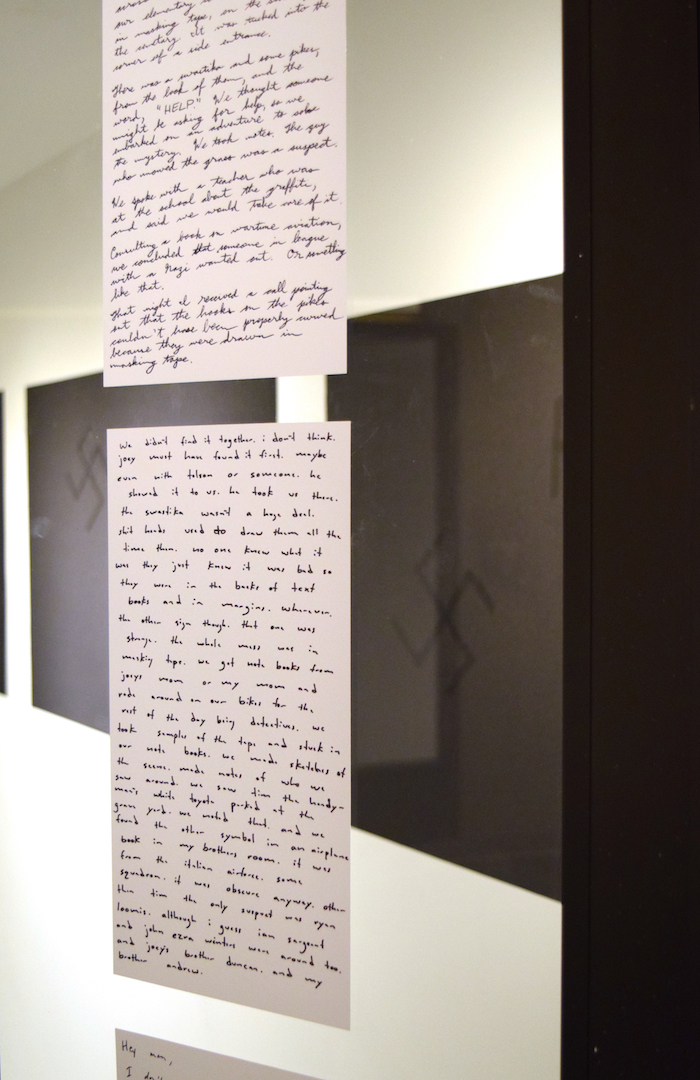 our elementary
in masking tape, on the
the cemetary. It was tucked into the
corner of a side entrance.
There was a swastika and some pikes,
from the look of them, and the
word, "HELP." We thought someone
might be asking for help, so we
embarked on an adventure to solve
the mystery. We took notes. The guy
who mowed the grass was a suspect.
We spoke with a teacher who was
at the school about the graffiti,
and said we would take care of it.
Consulting a book on wartime aviation,
we concluded that someone in league
with a Nazi wanted out. Or something
like that.
That night I received a call pointing
out that the hooks on the pikes
couldn't have been properly curved
because they were drawn in
masking tape.
we didn't find it together. i don't think.
joey must have found it first. maybe
even with tolson or someone. he
showed it to us. he took us there.
the swastika wasn't a huge deal.
shit heads used to draw them all the
time then. no one knew what it
was they just knew it was bad so
they were in the backs of text
books and in margins. whenever.
the other sign though. that one was
strange. the whole mess was in
masking tape. we got note books from
joeys mom or my mom and
rode around on our bikes for the
rest of the day being detectives. we
took samples of the tape and stuck in
our note books. we made sketches of
the scene. made notes of who we
saw around. we saw tim the handy-
man's white toyota parked at the
grave yard. we noted that. and we
found the other symbol in an airplane
book in my brothers room. it was
from the italian airforce. some
squadron. it was obscure anyway. other
then tim the only suspect was ryan
loomis. although i guess ian sargent
and john ezra winters were around too.
and joey's brother duncan. and my
brother andrew.
Hey man,
I don't